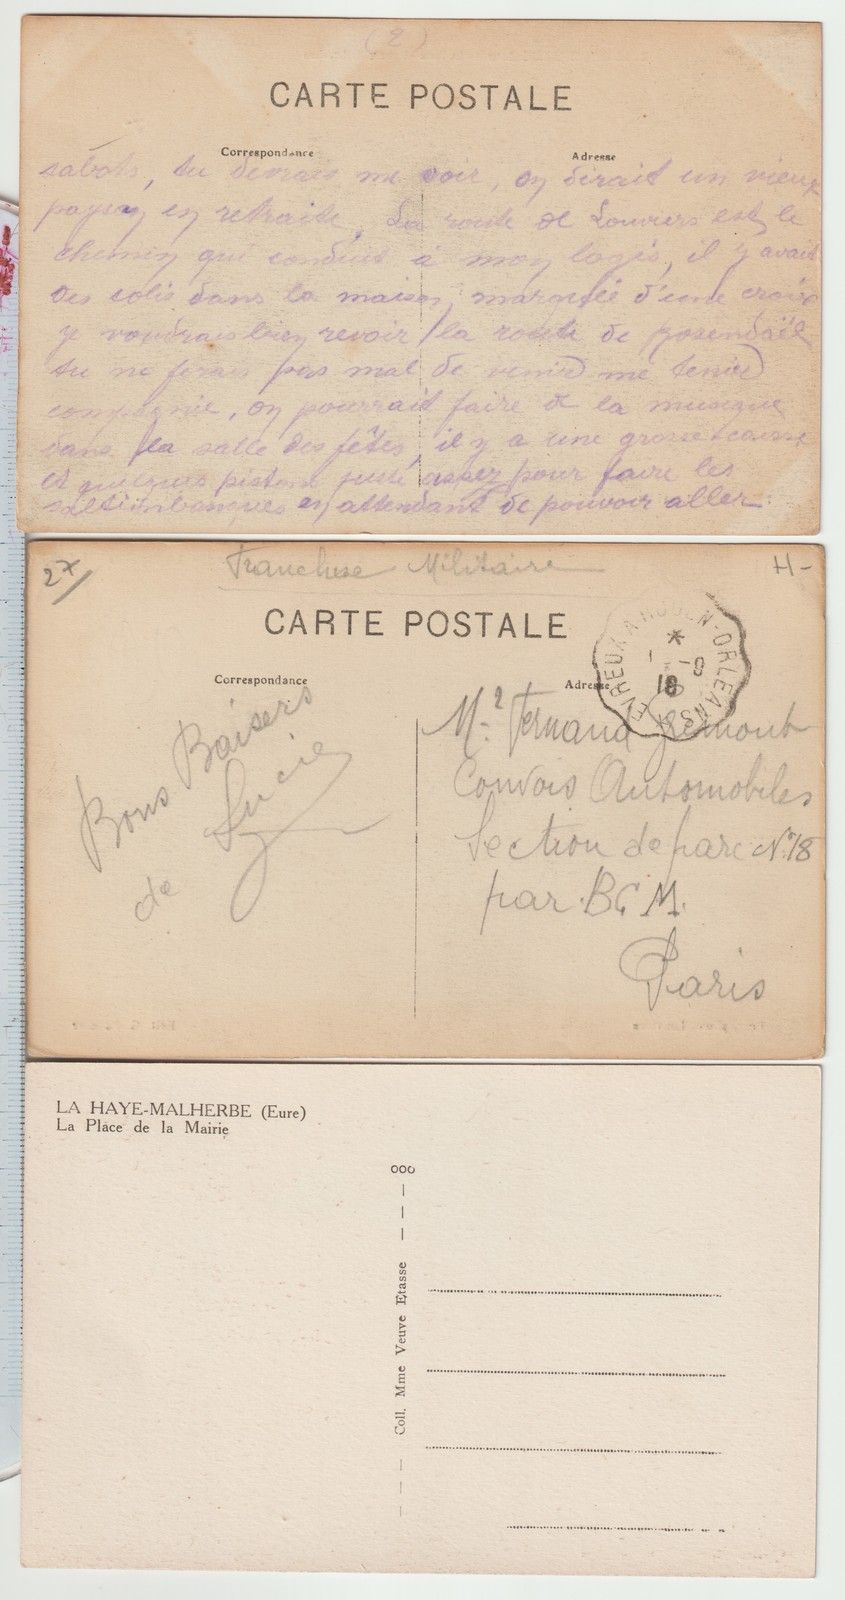 (2)
CARTE POSTALE
Correspondance
Adresse
sabots, tu devrais me voir, on dirait un vieux
paysan en retraite. La route de Louviers est le
chemin qui conduit à mon logis, il y avait
des colis dans la maison, marquée d'une croix
je voudrais bien revoir la route de Rosendaël
tu ne ferais pas mal de venir me tenir
compagnie, on pourrait faire de la musique
dans la salle des fêtes, il y a une grosse caisse
et quelques pistons juste assez pour faire les
saltimbanques en attendant de pouvoir aller
2x
Franchise Militaire
H-
CARTE POSTALE
EVREUX A ROUEN-ORLEANS
18
Correspondance
Adresse
Bons Baisers
de Lucie
Mr Fernand Fremont
Convois Automobiles
Section de parc N°18
par B.C.M.
Paris
LA HAYE-MALHERBE (Eure)
La Place de la Mairie
Coll. Mme Veuve Etasse